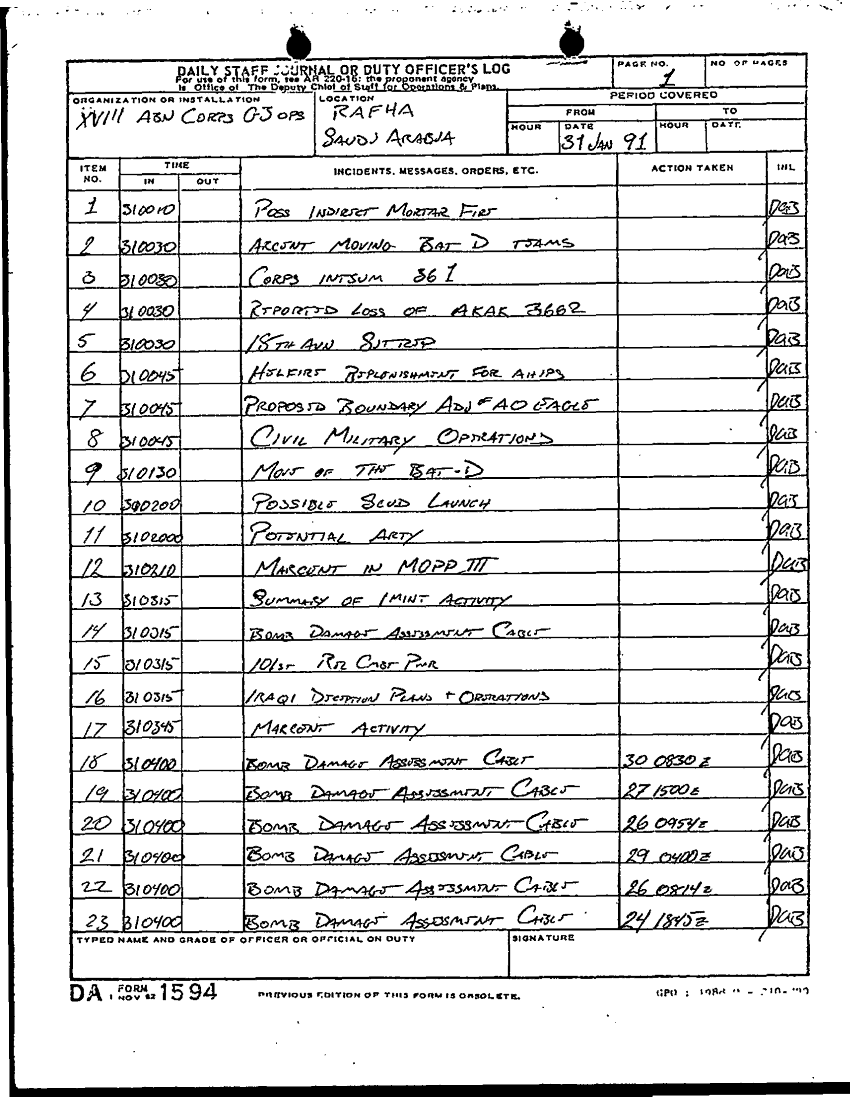 DAILY STAFF JOURNAL OR DUTY OFFICER'S LOG
For use of this form, see AR 220-15; the proponent agency
is Office of The Deputy Chief of Staff for Operations & Plans.
PAGE NO.
1
NO OF PAGES
ORGANIZATION OR INSTALLATION
XVIII ABN CORPS G3 OPS
LOCATION
RAFHA
SAUDI ARABIA
PERIOD COVERED
FROM TO
HOUR DATE HOUR DATE
31 JAN 91
ITEM NO. TIME IN OUT INCIDENTS, MESSAGES, ORDERS, ETC. ACTION TAKEN INL
1 310010 POSS INDIRECT MORTAR FIRE DAB
2 310030 ARCENT MOVING BAT D TEAMS DAB
3 310030 CORPS INTSUM 361 DAB
4 310030 REPORTED LOSS OF AKAK 3662 DAB
5 310030 18TH AVN SITREP DAB
6 310045 HELFIRE REPLENISHMENT FOR AHIPS DAB
7 310045 PROPOSED BOUNDARY ADJ AO EAGLE DAB
8 310045 CIVIL MILITARY OPERATIONS DAB
9 310130 MOVE OF THE BAT-D DAB
10 310200 POSSIBLE SCUD LAUNCH DAB
11 3102000 POTENTIAL ARTY DAB
12 310210 MARCENT IN MOPP III DAB
13 310315 SUMMARY OF IMINT ACTIVITY DAB
14 310315 BOMB DAMAGE ASSESSMENT CABLE DAB
15 310315 101st REL CMBT PWR DAB
16 310315 IRAQI DECEPTION PLANS + OPERATIONS DAB
17 310345 MARCENT ACTIVITY DAB
18 310400 BOMB DAMAGE ASSESSMENT CABLE 30 0830 Z DAB
19 310400 BOMB DAMAGE ASSESSMENT CABLE 27 1500 Z DAB
20 310400 BOMB DAMAGE ASSESSMENT CABLE 26 0954 Z DAB
21 310400 BOMB DAMAGE ASSESSMENT CABLE 29 0400 Z DAB
22 310400 BOMB DAMAGE ASSESSMENT CABLE 26 0814 Z DAB
23 310400 BOMB DAMAGE ASSESSMENT CABLE 24 1845 Z DAB
TYPED NAME AND GRADE OF OFFICER OR OFFICIAL ON DUTY SIGNATURE
DA FORM 1 NOV 62 1594 PREVIOUS EDITION OF THIS FORM IS OBSOLETE.